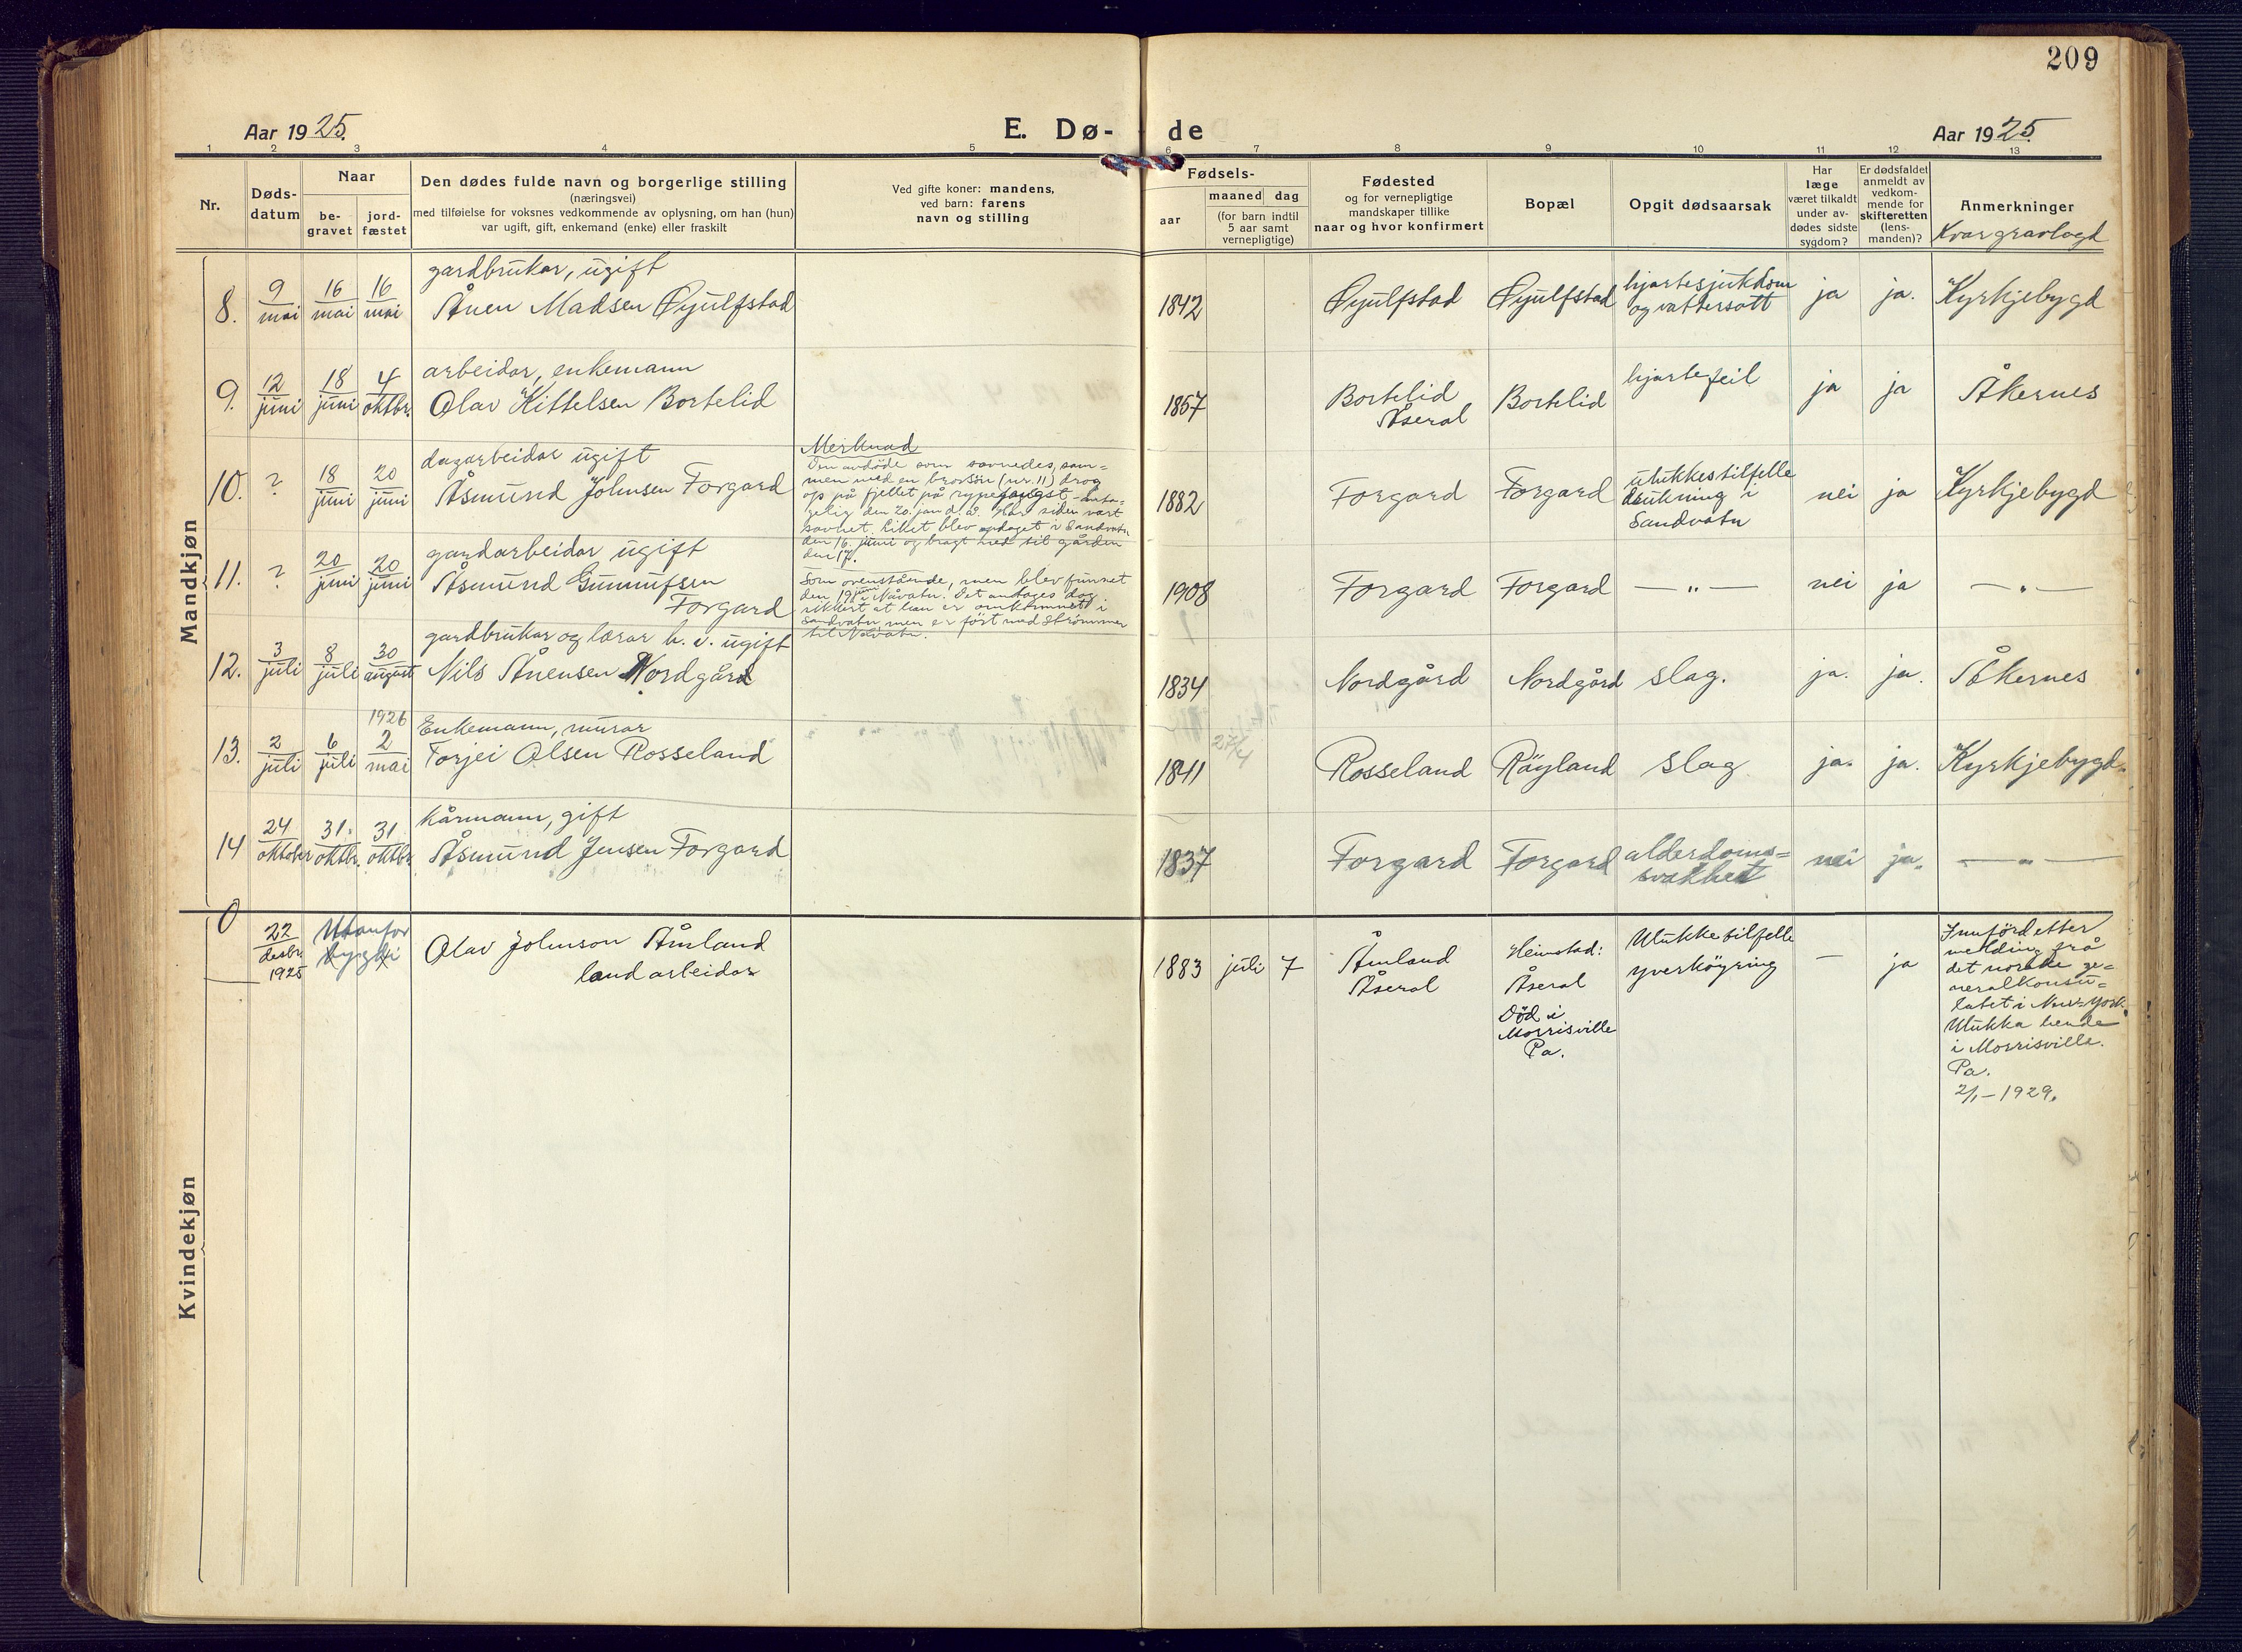 209
Aar 1925.
E. Dø-
de
Aar 1925.
1 2 3 4 5 6 7 8 9 10 11 12 13
Nr.
Døds-
datum
Naar
be-
gravet
jord-
fæstet
Den dødes fulde navn og borgerlige stilling
(næringsvei)
med tilføielse for voksnes vedkommende av oplysning, om han (hun)
var ugift, gift, enkemand (enke) eller fraskilt
Ved gifte koner: mandens,
ved barn: farens
navn og stilling
Fødsels-
aar
maaned dag
(for barn indtil
5 aar samt
vernepligtige)
Fødested
og for vernepligtige
mandskaper tillike
naar og hvor konfirmert
Bopæl
Opgit dødsaarsak
Har
læge
været tilkaldt
under av-
dødes sidste
sygdom?
Er dødsfaldet
anmeldt av
vedkom-
mende for
skifteretten
(lens-
manden)?
Anmerkninger
Kvar gravlagd
Mandkjøn
8.
9
mai
16
mai
16
mai
gardbrukar, ugift
Ånen Madsen Øyulfstad
1842
Øyulfstad
Øyulfstad
hjartesjukdom
og vattersott
ja
ja.
Kyrkjebygd
9.
12
juni
18
juni
4
oktbr.
arbeidar, enkemann
Olav Kittelsen Bortelid
1857
Bortelid
Åseral
Bortelid
hjartefeil
ja
ja
Åkernes
10.
?
18
juni
20
juni
dagarbeidar ugift
Åsmund Johnsen Forgard
Merknad
Den avdöde som savnedes, sam=
men med en brorsön (nr. 11) drog
op på fjellet på rypefangst - anta-
gelig den 20. jan d. å. Har siden vært
savnet. Liket blev opdaget i Sandvatn
den 16. juni og bragt ned til gården
den 17.
1882
Forgard
Forgard
ulukkestilfelle
drukning i
Sandvatn
nei
ja
Kyrkjebygd
11.
?
20
juni
20
juni
gardarbeidar ugift
Åsmund Gunnufsen
Forgard
Som ovenstående, men blev funnet
den 19 juni i Nåvatn. Det antages dog
sikkert at han er omkommet i
Sandvatn men er fört med strömmen
til Nåvatn.
1908
Forgard
Forgard
— „ —
nei
ja
— „ —
12.
3
juli
8
juli
30
august
gardbrukar og lærar h. v. ugift
Nils Ånensen Nordgård
1834
Nordgård
Nordgård
slag.
ja.
ja.
Åkernes
13.
2
juli
6
juli
1926
2
mai
Enkemann, murar
Torjei Olsen Rosseland
1841
27/4
Rosseland
Röyland
slag
ja.
ja.
Kyrkjebygd.
14
24
oktober
31.
oktbr.
31
oktbr.
kårmann, gift
Åsmund Jensen Forgard
1837
Forgard
Forgard
alderdoms=
svakhet
nei
ja.
— „ —
Kvindekjøn
0
22
desbr.
1925
Utanfor
bygdi
Olav Johnson Åmland
landarbeidar
1883
juli 7
Åmland
Åseral
Heimstad:
Åseral
Död i
Morrisville
Pa.
Ulukketilfelle
yverköyring
—
ja
Innförd etter
melding frå
det norske ge=
neralkonsu=
latet i New-York.
Ulukka hende
i Morrisville.
Pa.
2/1 - 1929.